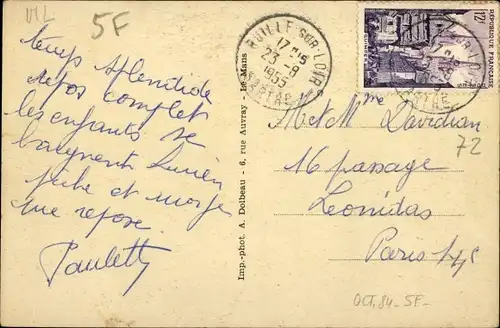 VIL
5F
temps splendide
repos complet
les enfants se
baignent Lucien
pêche et moi je
me repose
Paulette
Imp.-phot. A. Dolbeau - 6, rue Auvray - Le Mans
RUILLÉ-SUR-LOIR
17H15
23-8
1955
SARTHE
12F
REPUBLIQUE FRANÇAISE
M et Mme Davidian
16 passage
Leonidas
Paris 14e
72
OCT. 84 - 5F -